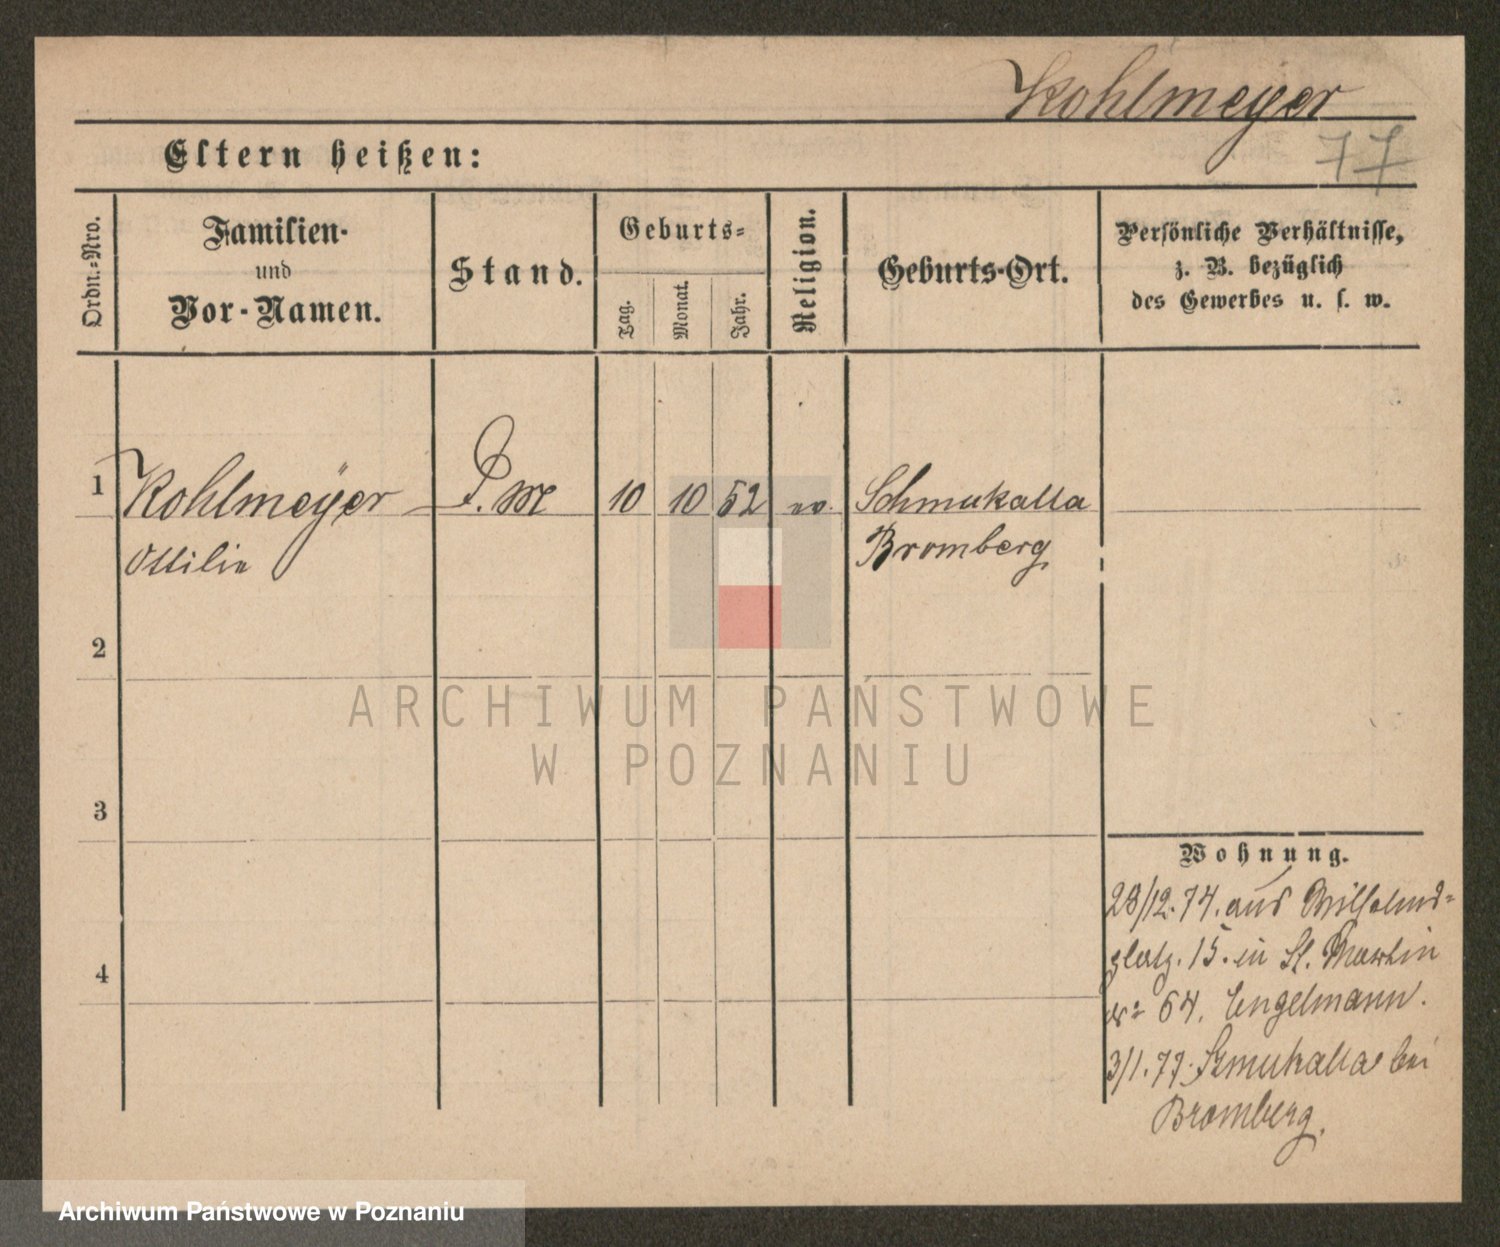 Kohlmeyer
77
Eltern heißen:
Ordn.-Nro.
Familien-
und
Vor-Namen.
Stand.
Geburts-
Tag.
Monat.
Jahr.
Religion.
Geburts-Ort.
Persönliche Verhältnisse,
z. B. bezüglich
des Gewerbes u. s. w.
1 Kohlmeyer P. M 10 10 52 ev. Schmukalla
Ottilie Bromberg
2
3
4
Wohnung.
28/12. 74. aus Wilhelms-
platz. 15. in St. Martin
No 64. Engelmann.
3/1. 77. Szmukalla bei
Bromberg.
ARCHIWUM PAŃSTWOWE
W POZNANIU
Archiwum Państwowe w Poznaniu